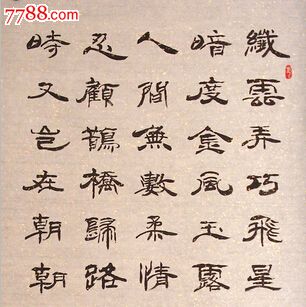 7788.com
纖雲弄巧飛星
暗度金風玉露
人間無數柔情
忍顧鵲橋歸路
時又豈在朝朝